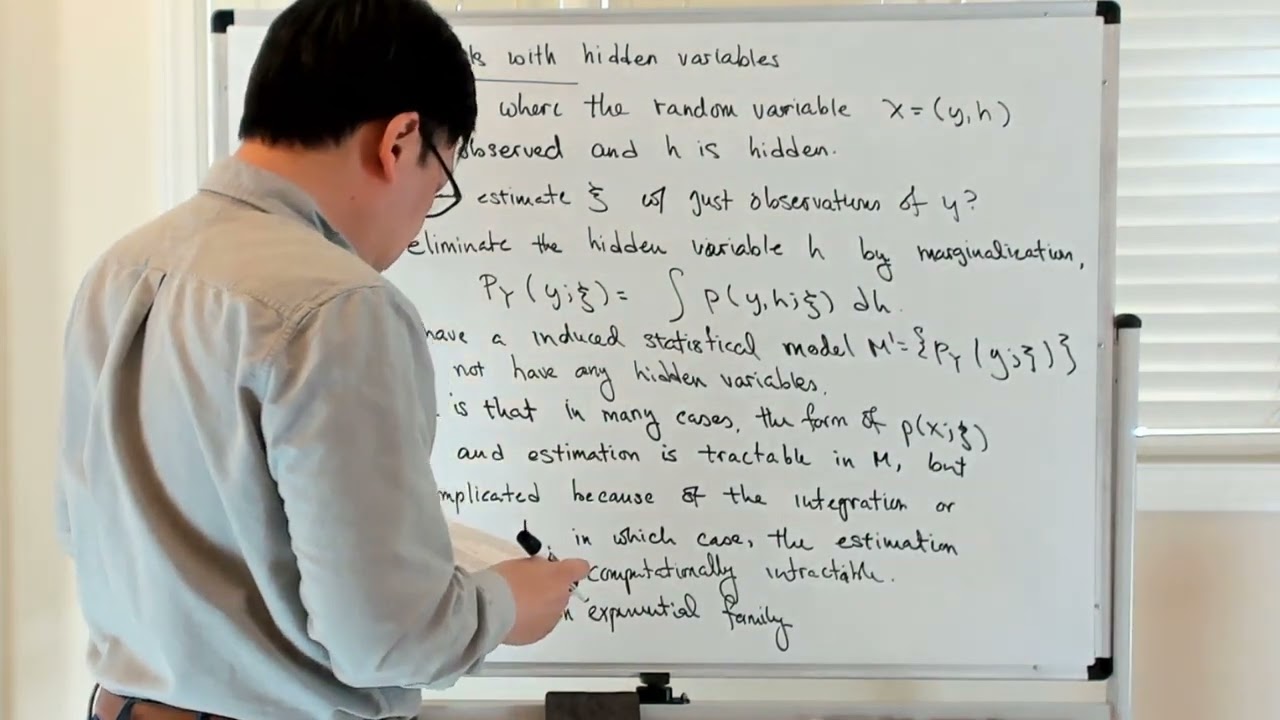 with hidden variables
where the random variable x = (y, h)
observed and h is hidden.
estimate ξ w/ just observations of y?
eliminate the hidden variable h by marginalization,
P_Y (y; ξ) = ∫ p(y, h; ξ) dh.
have a induced statistical model M' = {P_Y (y; ξ)}
not have any hidden variables.
is that in many cases, the form of p(x; ξ)
and estimation is tractable in M, but
because of the integration or
in which case, the estimation
computationally intractable.
exponential family